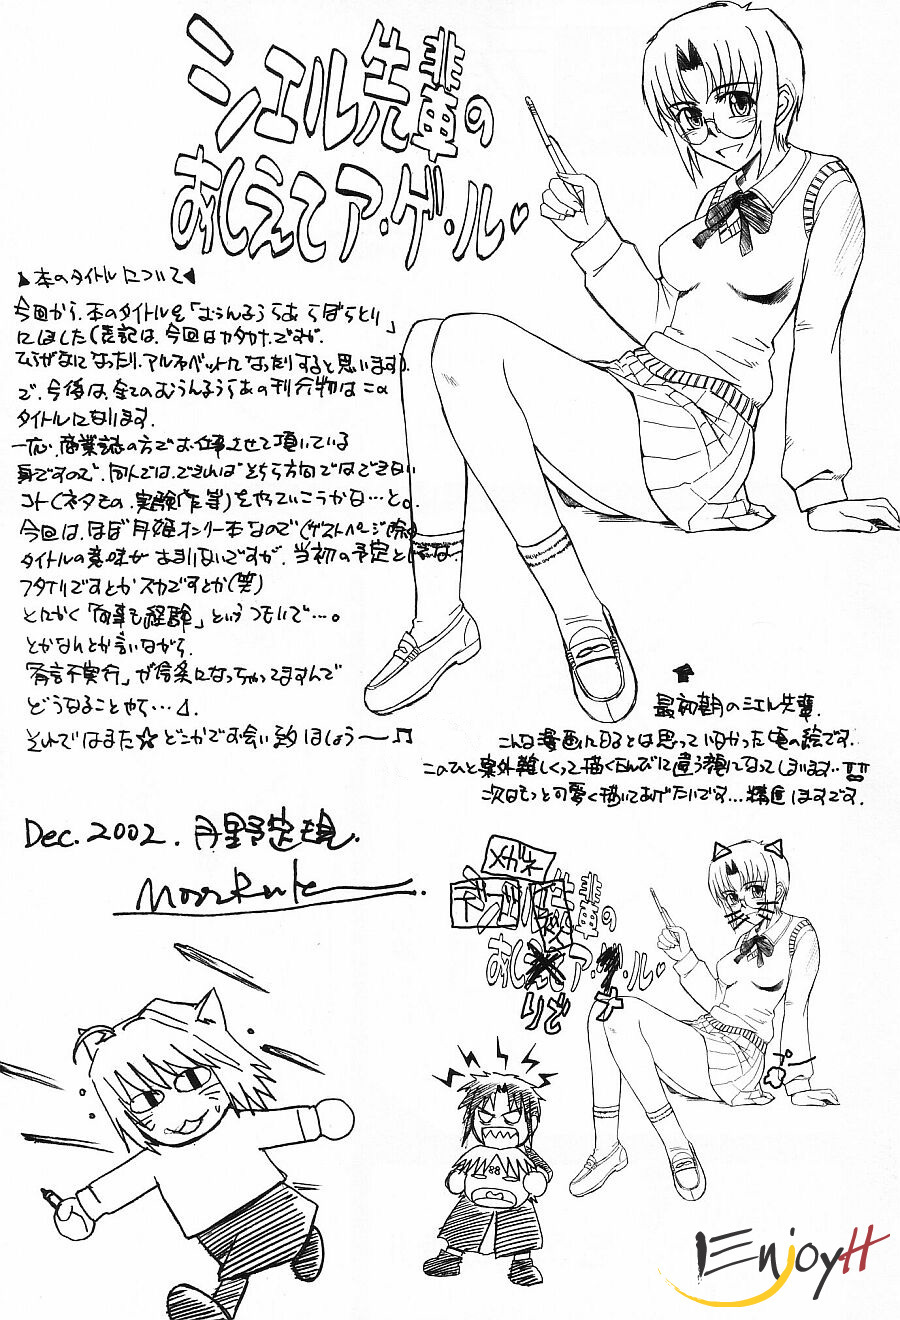 シエル先輩の
おしえてア・ゲ・ル♥
▶本のタイトルについて◀
今回から、本のタイトルを「むぅんるぅらあ らぼらとり」
にしました(表記は、今回はカタカナですが、
ひらがなになったり、アルファベットになったりすると思います)。
で、今後は、全てのむぅんるぅらあの刊行物はこの
タイトルになります。
一応、商業誌の方でお仕事させて頂いている
身ですので、同人では、できればそちら方向ではできない
コト(ネタとの、実験作等)をやっていこうかな…と。
今回は、ほぼ月姫オンリー本なので(ゲストページ除く)
タイトルの意味があまりないですが、当初の予定としては、
フタナリですとかスカですとか(笑)
とにかく「何事も経験」というつもりで…。
とかなんとか言いながら、
「有言不実行」が信条になっちゃってますんで
どうなることやら…
それではまた☆どこかでお会い致しましょう〜♫
Dec. 2002. 月野定規.
MoonRule
⬆
最初期のシエル先輩。
こんな漫画になるとは思っていなかった頃の絵です。
このひと案外難しくって描くたんびに違う顔になってしまいます…!!
次はもっと可愛く描いてあげたいです…精進しますです。
メガネ
デ
輩の
あし
ア・
・ル♥
りぞ
ナ
プー
88
EnjoyH